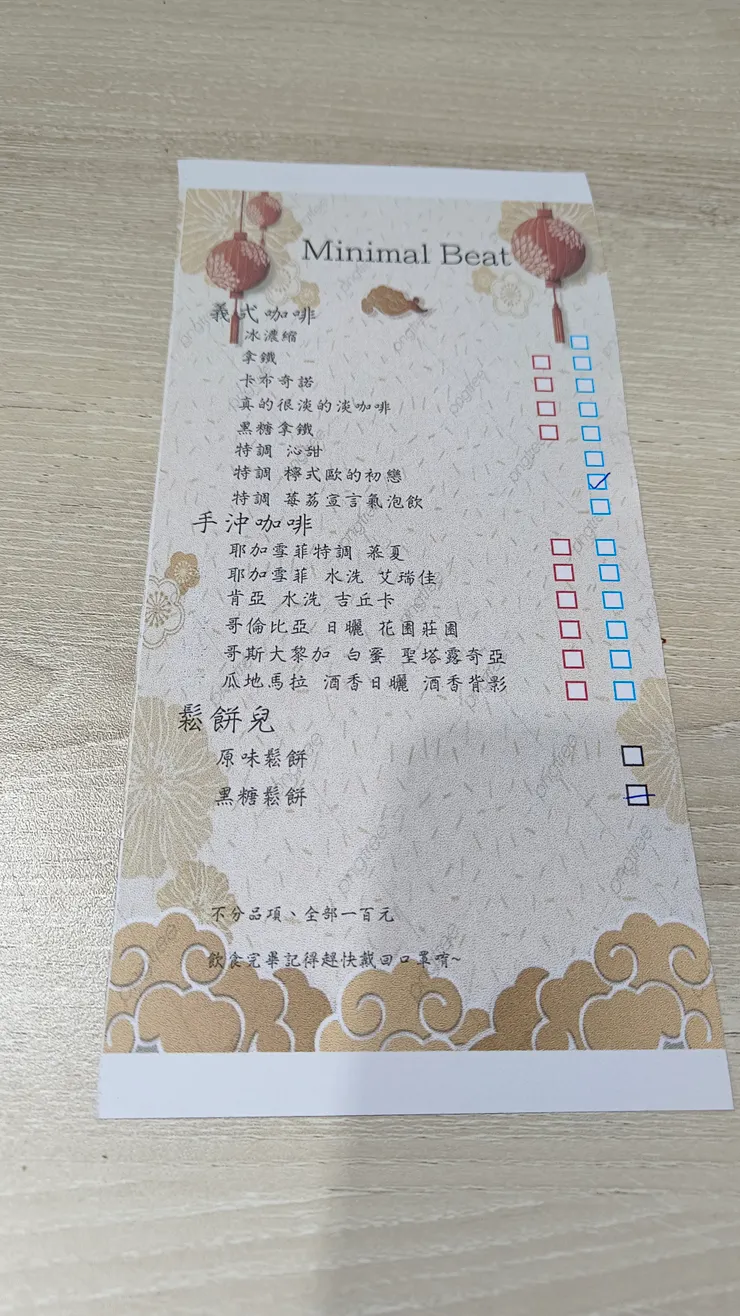 Minimal Beat
義式咖啡
冰濃縮
拿鐵
卡布奇諾
真的很淡的淡咖啡
黑糖拿鐵
特調 沁甜
特調 檸式歐的初戀
特調 莓荔宣言氣泡飲
手沖咖啡
耶加雪菲特調 慕夏
耶加雪菲 水洗 艾瑞佳
肯亞 水洗 吉丘卡
哥倫比亞 日曬 花園莊園
哥斯大黎加 白蜜 聖塔露奇亞
瓜地馬拉 酒香日曬 酒香背影
鬆餅兒
原味鬆餅
黑糖鬆餅
不分品項、全部一百元
飲食完畢記得趕快戴回口罩唷~